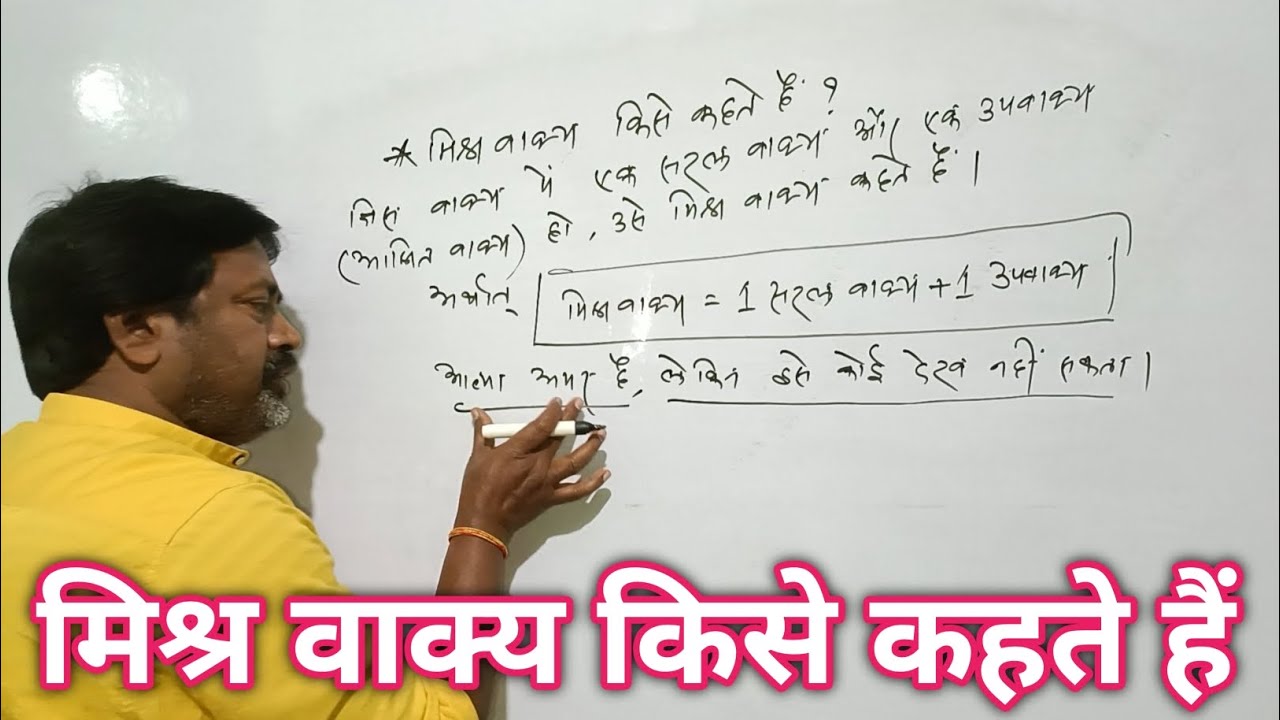 * मिश्र वाक्य किसे कहते हैं ?
जिस वाक्य में एक सरल वाक्य और एक उपवाक्य
(आश्रित वाक्य) हो, उसे मिश्र वाक्य कहते हैं।
अर्थात् मिश्र वाक्य = 1 सरल वाक्य + 1 उपवाक्य
आत्मा अमर है, लेकिन इसे कोई देख नहीं सकता।
मिश्र वाक्य किसे कहते हैं